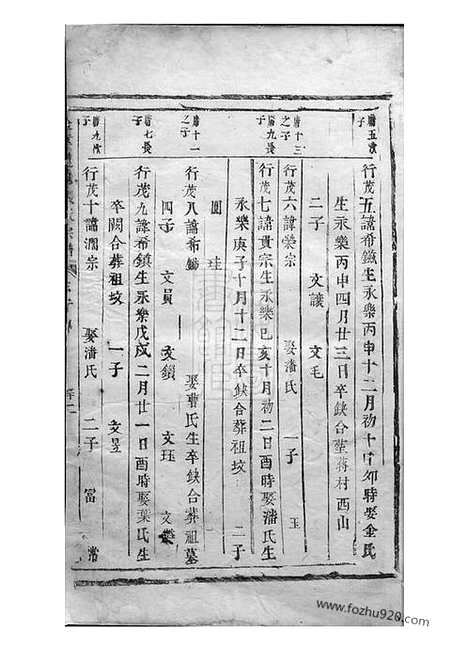 膳五次子
行茂五諱希鐵生永樂丙申十二月初十日卯時娶金氏
生永樂丙申四月廿三日卒缺合塟蔣村西山
二子 文讓 文毛
膳十三之子
行茂六諱榮宗 娶潘氏 一子 玉
膳九長子
行茂七諱貴宗生永樂己亥十月初二日酉時娶潘氏生
永樂庚子十月十二日卒缺合葬祖坟 二子
圓 珪
膳十一之子
行茂八諱希 娶曹氏生卒缺合葬祖墓
四子 文員 文鎖 文珏 文
膳七長子
行茂九諱希鎮生永樂戊戌二月廿一日酉時娶葉氏生
卒闕合葬祖坟 一子 文昱
膳九次子
行茂十諱潤宗 娶潘氏 二子 富 常
www.fozhu920.com